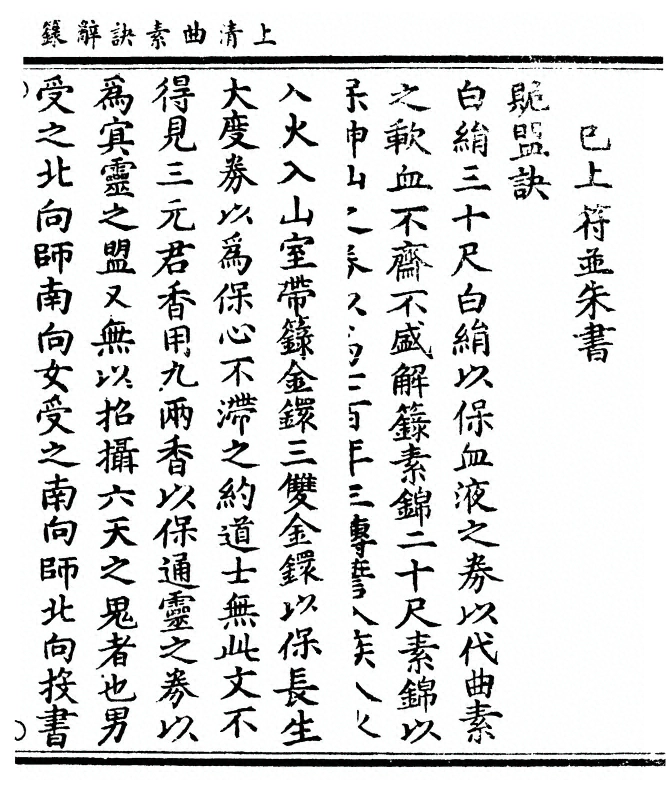 上清曲素訣辭籙
已上符並朱書
盟訣
白絹三十尺白絹以保血液之券以代曲素
之歃血不齋不盛解籙素錦二十尺素錦以
保神山之券以為三百年三傳誓入
入火入山室帶籙金鐶三雙金鐶以保長生
大度券以為保心不滯之約道士無此文不
得見三元君香用九兩香以保通靈之券以
為㝠靈之盟又無以招攝六天之鬼者也男
受之北向師南向女受之南向師北向授書